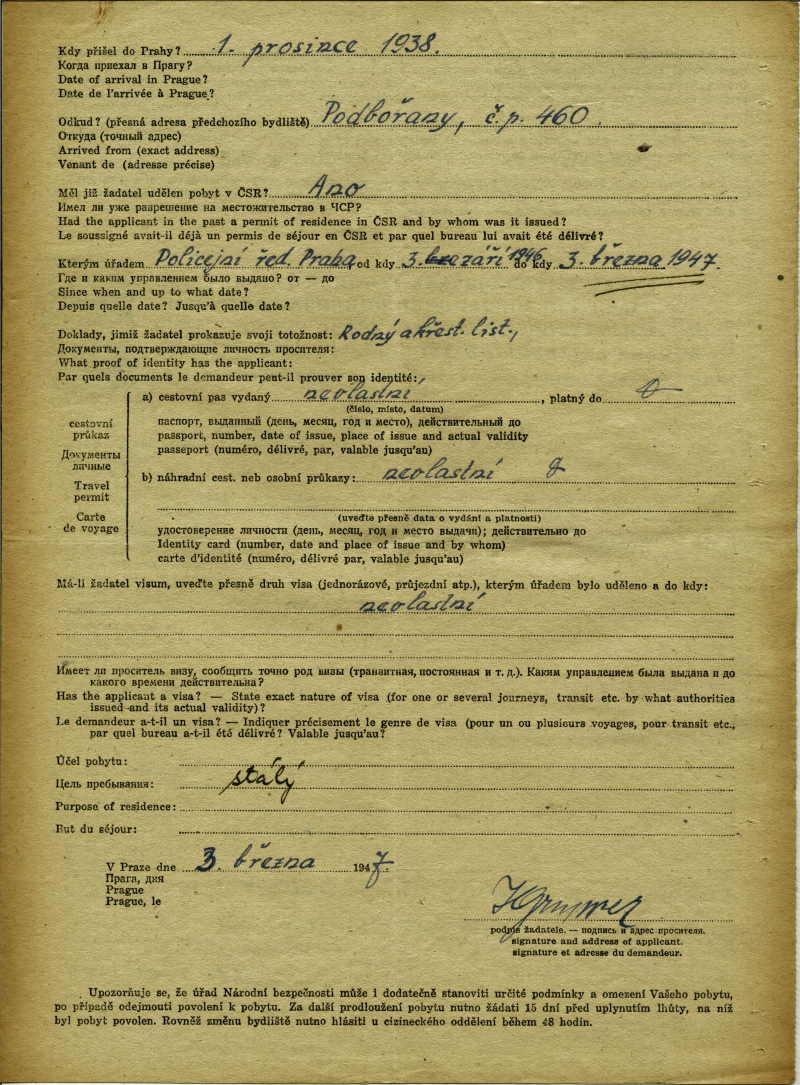 Kdy přišel do Prahy? 1. prosince 1938.
Когда приехал в Прагу?
Date of arrival in Prague?
Date de l'arrivée à Prague?
Odkud? (přesná adresa předchozího bydliště) Podbořany, č.p. 460.
Откуда (точный адрес)
Arrived from (exact address)
Venant de (adresse précise)
Měl již žadatel udělen pobyt v ČSR? Ano
Имел ли уже разрешение на местожительство в ЧСР?
Had the applicant in the past a permit of residence in ČSR and by whom was it issued?
Le soussigné avait-il déjà un permis de séjour en ČSR et par quel bureau lui avait été délivré?
Kterým úřadem Policejní řed. Praha od kdy 3. září 1946 do kdy 3. března 1947
Где и каким управлением было выдано? от — до
Since when and up to what date?
Depuis quelle date? Jusqu'à quelle date?
Doklady, jimiž žadatel prokazuje svoji totožnost: Rodný a křest. list.,
Документы, подтверждающие личность просителя:
What proof of identity has the applicant:
Par quels documents le demandeur peut-il prouver son identité:
a) cestovní pas vydaný nevlastní, platný do
(číslo, místo, datum)
паспорт, выданный (день, месяц, год и место), действительный до
passport, number, date of issue, place of issue and actual validity
passeport (numéro, délivré, par, valable jusqu'au)
cestovní
průkaz
Документы
личные
Travel
permit
Carte
de voyage
b) náhradní cest. neb osobní průkazy: nevlastní
(uveďte přesně data o vydání a platnosti)
удостоверение личности (день, месяц, год и место выдачи); действительно до
Identity card (number, date and place of issue and by whom)
carte d'identité (numéro, délivré par, valable jusqu'au)
Má-li žadatel visum, uveďte přesně druh visa (jednorázové, průjezdní atp.), kterým úřadem bylo uděleno a do kdy:
nevlastní
Имеет ли проситель визу, сообщить точно род визы (транзитная, постоянная и т. д.). Каким управлением была выдана и до
какого времени действительна?
Has the applicant a visa? — State exact nature of visa (for one or several journeys, transit etc. by what authorities
issued and its actual validity)?
Le demandeur a-t-il un visa? — Indiquer précisement le genre de visa (pour un ou plusieurs voyages, pour transit etc.,
par quel bureau a-t-il été délivré? Valable jusqu'au?
Účel pobytu:
Цель пребывания: stálý
Purpose of residence:
But du séjour:
V Praze dne 3. března 1947.
Прага, дня
Prague
Prague, le
podpis žadatele. — подпись и адрес просителя.
signature and address of applicant.
signature et adresse du demandeur.
Upozorňuje se, že úřad Národní bezpečnosti může i dodatečně stanoviti určité podmínky a omezení Vašeho pobytu,
po případě odejmouti povolení k pobytu. Za další prodloužení pobytu nutno žádati 15 dní před uplynutím lhůty, na níž
byl pobyt povolen. Rovněž změnu bydliště nutno hlásiti u cizineckého oddělení během 48 hodin.